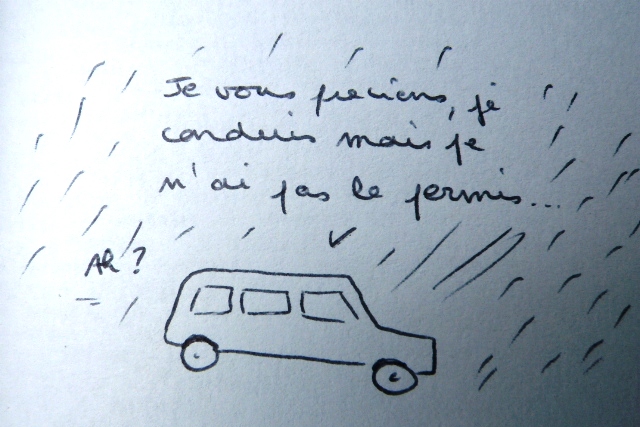 Je vous préviens, je
conduis mais je
n'ai pas le permis...
AH ?